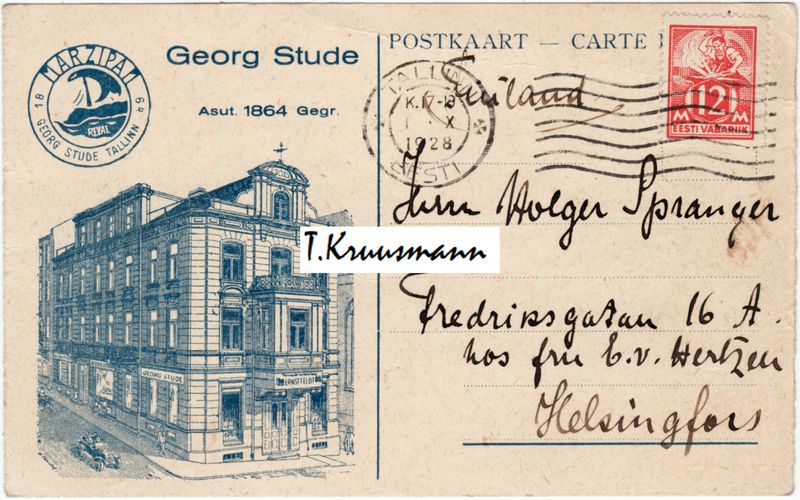 MARZIPAN
18 64
REVAL
GEORG STUDE TALLINN
Georg Stude
Asut. 1864 Gegr.
POSTKAART — CARTE
TALLINN
K.17-18
X
1928
EESTI
12
M M
EESTI VABARIIK
Herrn Holger Spranger
T.Kruusmann
Fredriksgatan 16 A.
hos fru E.v. Hertzen
Helsingfors
GEORG STUDE
ERNST FELDT